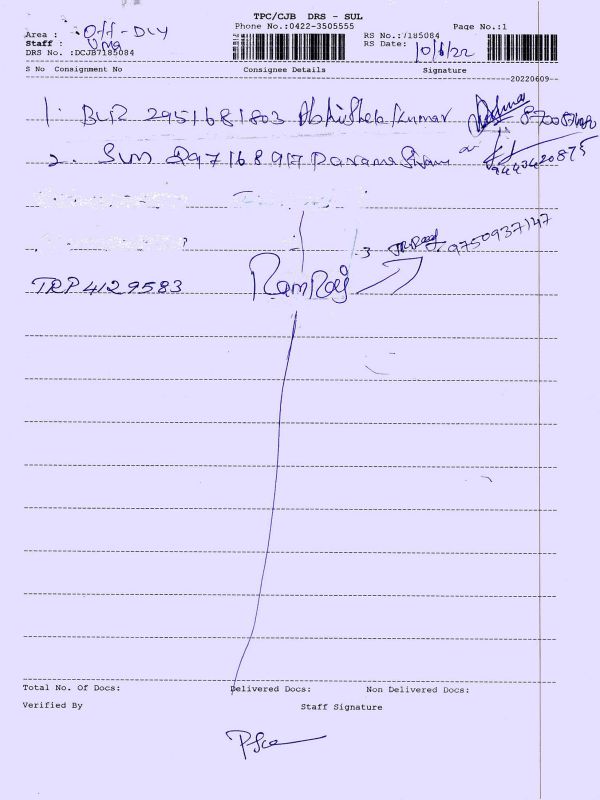 TPC/CJB DRS - SUL
Phone No.:0422-3505555 Page No.:1
Area : Off-DLY
Staff : Uma
RS No.:7185084
RS Date: 10/6/22
DRS No. :DCJB7185084
S No Consignment No Consignee Details Signature
20220609
1. BLR 2951681803 Abhishek Kumar
2. SUM 297168917 9443420875
3 9750937147
TRP4129583 RamRaj
Total No. Of Docs: Delivered Docs: Non Delivered Docs:
Verified By Staff Signature